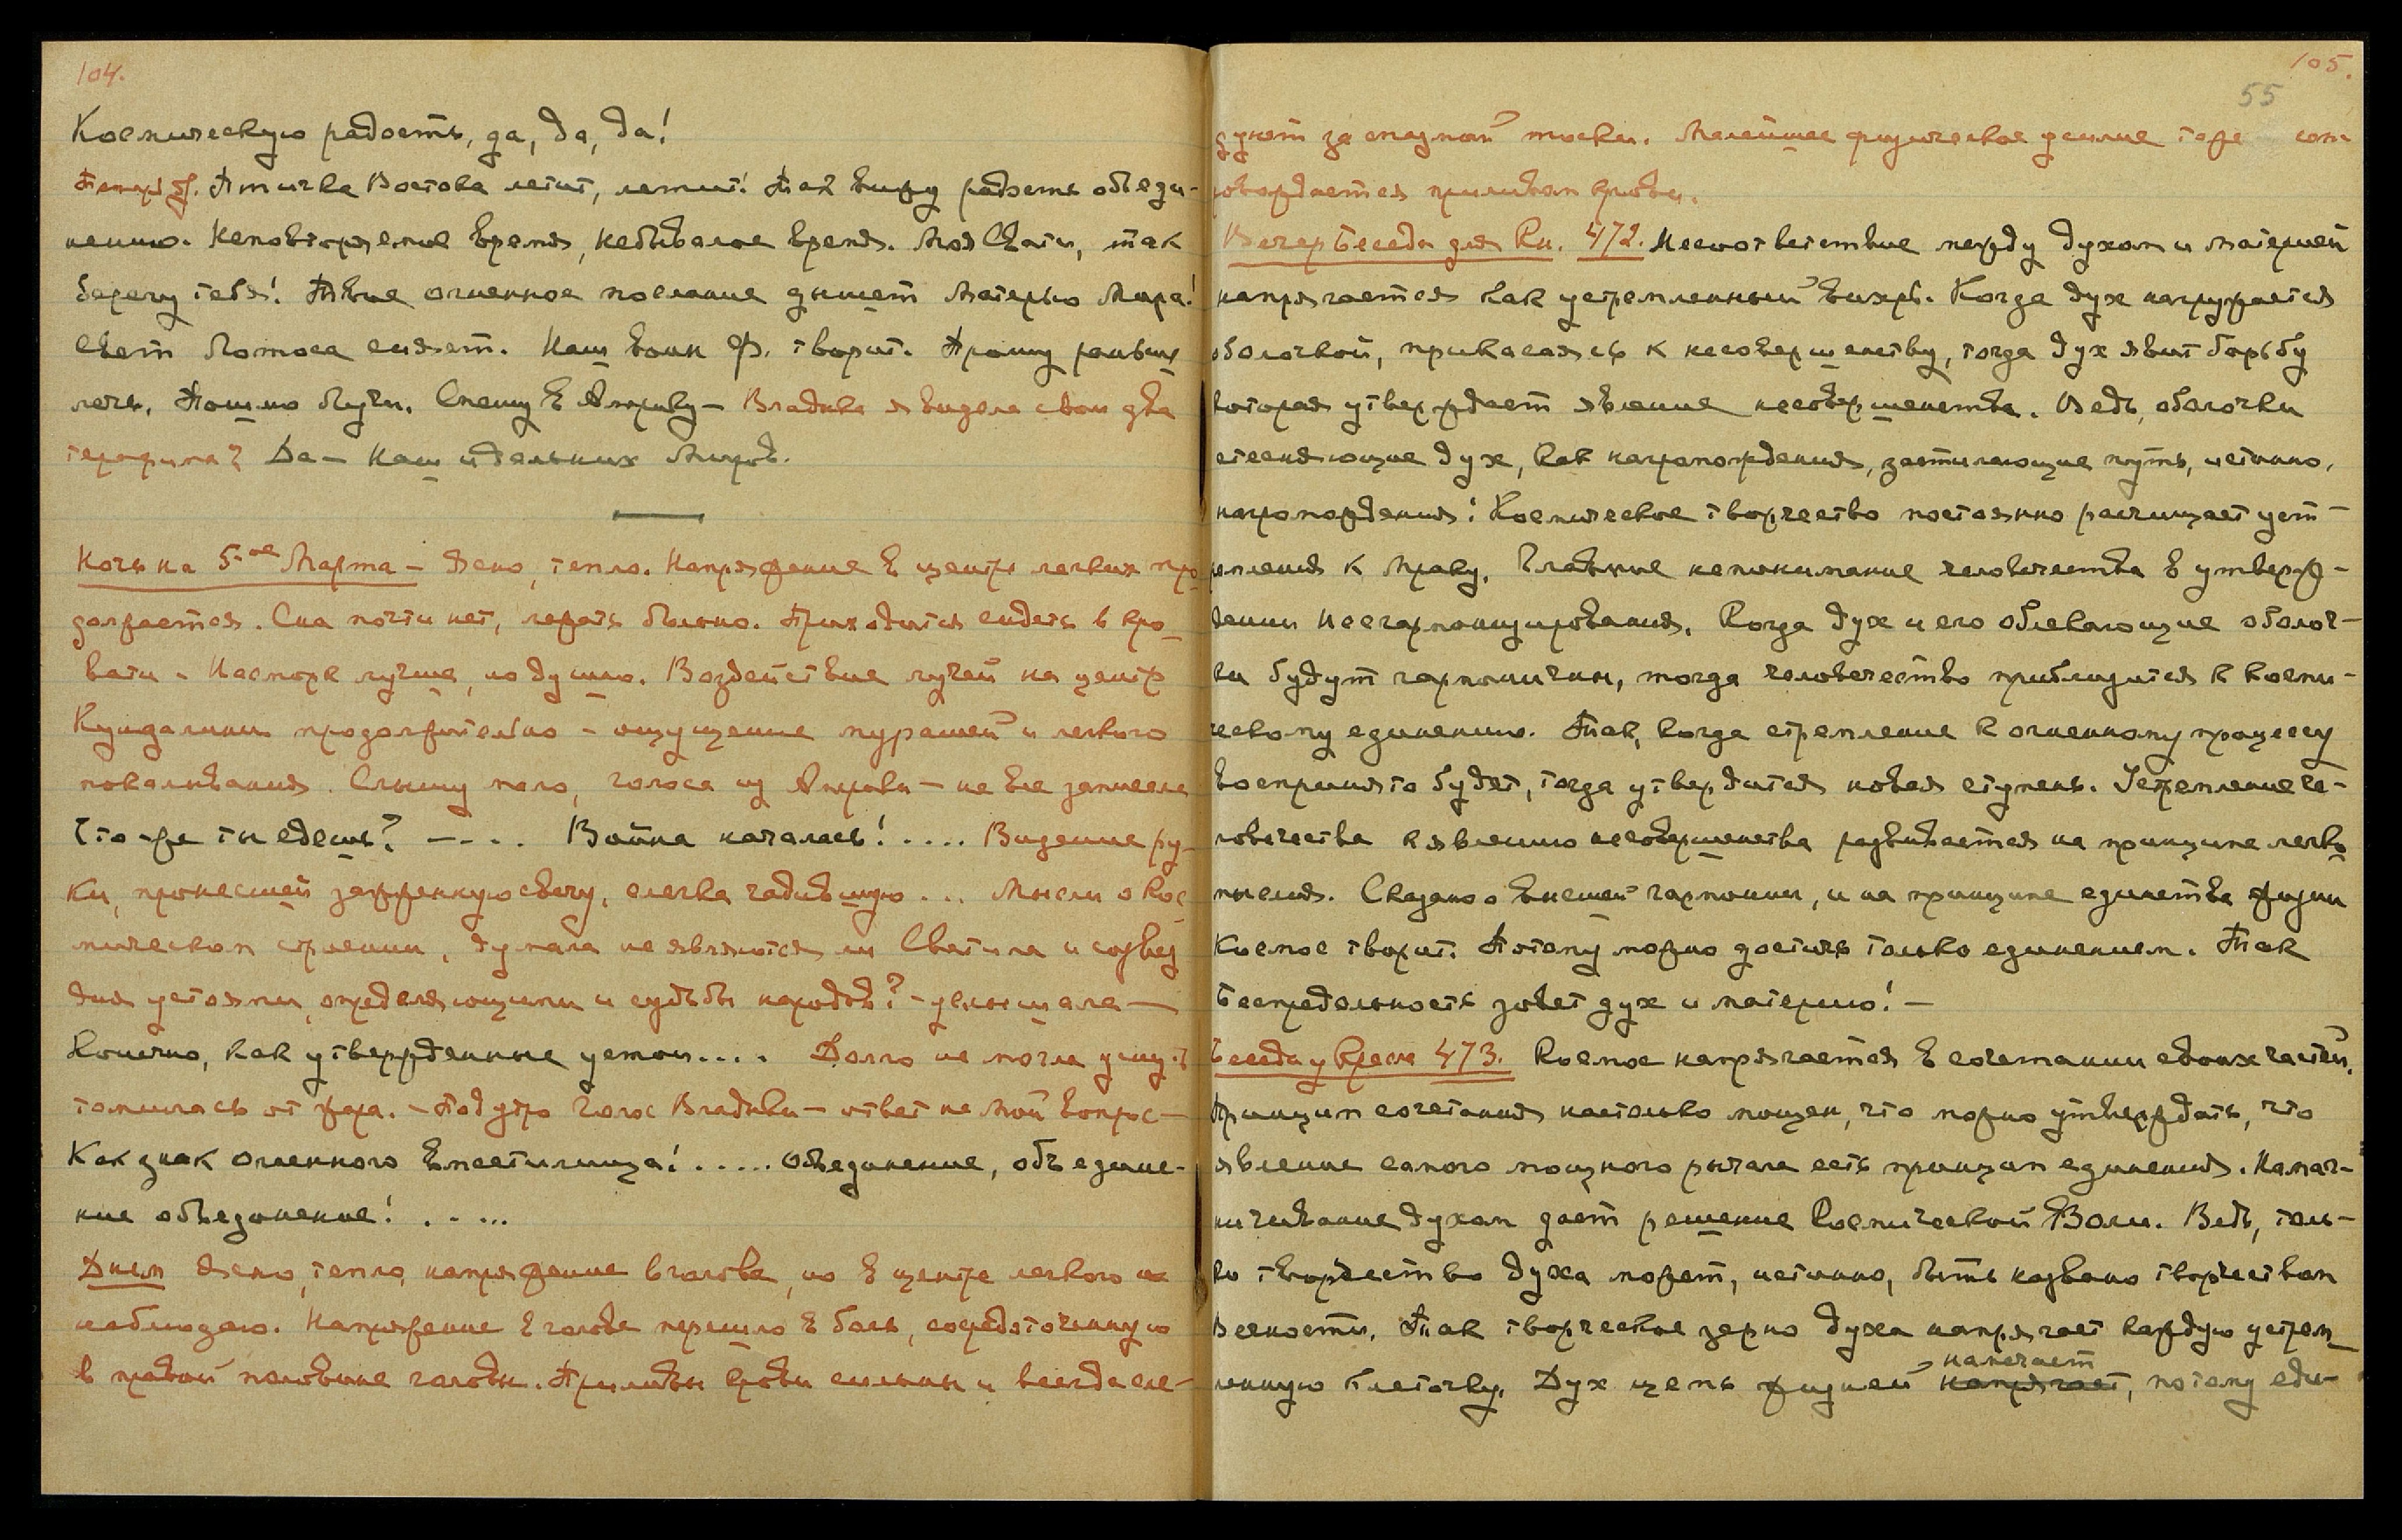 104.
Космическую радость, да, да, да!
Птичка Востока летит, летит! Так вижу радость объеди-
нению. Неповторяемое время, небывалое время. Моя Свати, так
берегу тебя! Явное огненное послание дышет Матерью Мира!
Свет Лотоса сияет. Наш воин Ф. творит. Прошу раньше
лечь. Пошлю Лучи. Спешу в Америку — Владыка я видела свои два
терафима? Да — наш и дальних Миров.
Ночь на 5-ое Марта — Ясно, тепло. Напряжение в центре легких про
должается. Сна почти нет, лежать больно. Приходится сидеть в кро-
вати — Насморк лучше, но душно. Воздействие лучей на центр
Кундалини продолжительно — ощущение мурашей и легкого
покалывания. Слышу мало, голоса из Америки — не все записала
Что же ты едешь? — ... Война началась! .... Видение ру-
ки, пронесшей зажженную свечу, слегка чадившую ... Мысли о Кос
мическом строении, думала не являются ли Светила и созвез
дия устоями, определяющими и судьбы народов? — услышала —
Конечно, как утвержденные устои.... Долго не могла уснуть
томилась от жара. — Под утро Голос Владыки — ответ на мой вопрос —
Как знак огненного Вместилища! ..... Объединение, объедине-
ние объединение! .....
Днем Ясно, тепло, напряжение в голове, но в центре легкого не
наблюдаю. Напряжение в голове перешло в боль, сосредоточенную
в правой половине головы. Приливы крови сильны и всегда сле-
105.
55
дуют за спазмой тоски. Малейшее физическое усилие тоже соп
ровождается приливом крови.
Вечер Беседы для Кн. 472. Несоответствие между духом и материей
напрягается как устремленный вихрь. Когда дух нагружается
оболочкой, прикасаясь к несовершенству, тогда дух явит борьбу
которая утверждает явление несовершенства. Ведь, оболочки
стесняющие дух, как нагромождения, застилающие путь, истинно,
нагромождения! Космическое творчество постоянно расчищает уст-
ремления к праву. Главное непонимание человечества в утверж-
дении несгармонизирования. Когда дух и его облекающие оболоч-
ки будут гармоничны, тогда человечество приблизится к косми-
ческому единению. Так, когда стремление к огненному процессу
воспринято будет, тогда утвердится новая ступень. Устремление че-
ловечества к явлению несовершенства развивается на принципе легко
мыслия. Сказано о высшей гармонии, и на принципе единства жизни
Космос творит. Потому можно достичь только единением. Так
Беспредельность зовет дух и материю! —
Беседы у Кресла 473. Космос напрягается в сочетании своих частей.
Принцип сочетания настолько мощен, что можно утверждать, что
явление самого мощного рычага есть принцип единения. Намаг-
ничивание духом дает решение Космической Воли. Ведь, толь-
ко творчество духа может, истинно, быть названо творчеством
Вечности. Так творческое зерно духа напрягает каждую устрем
ленную клеточку. Дух цепь жизней намечает напрягает, потому еди-